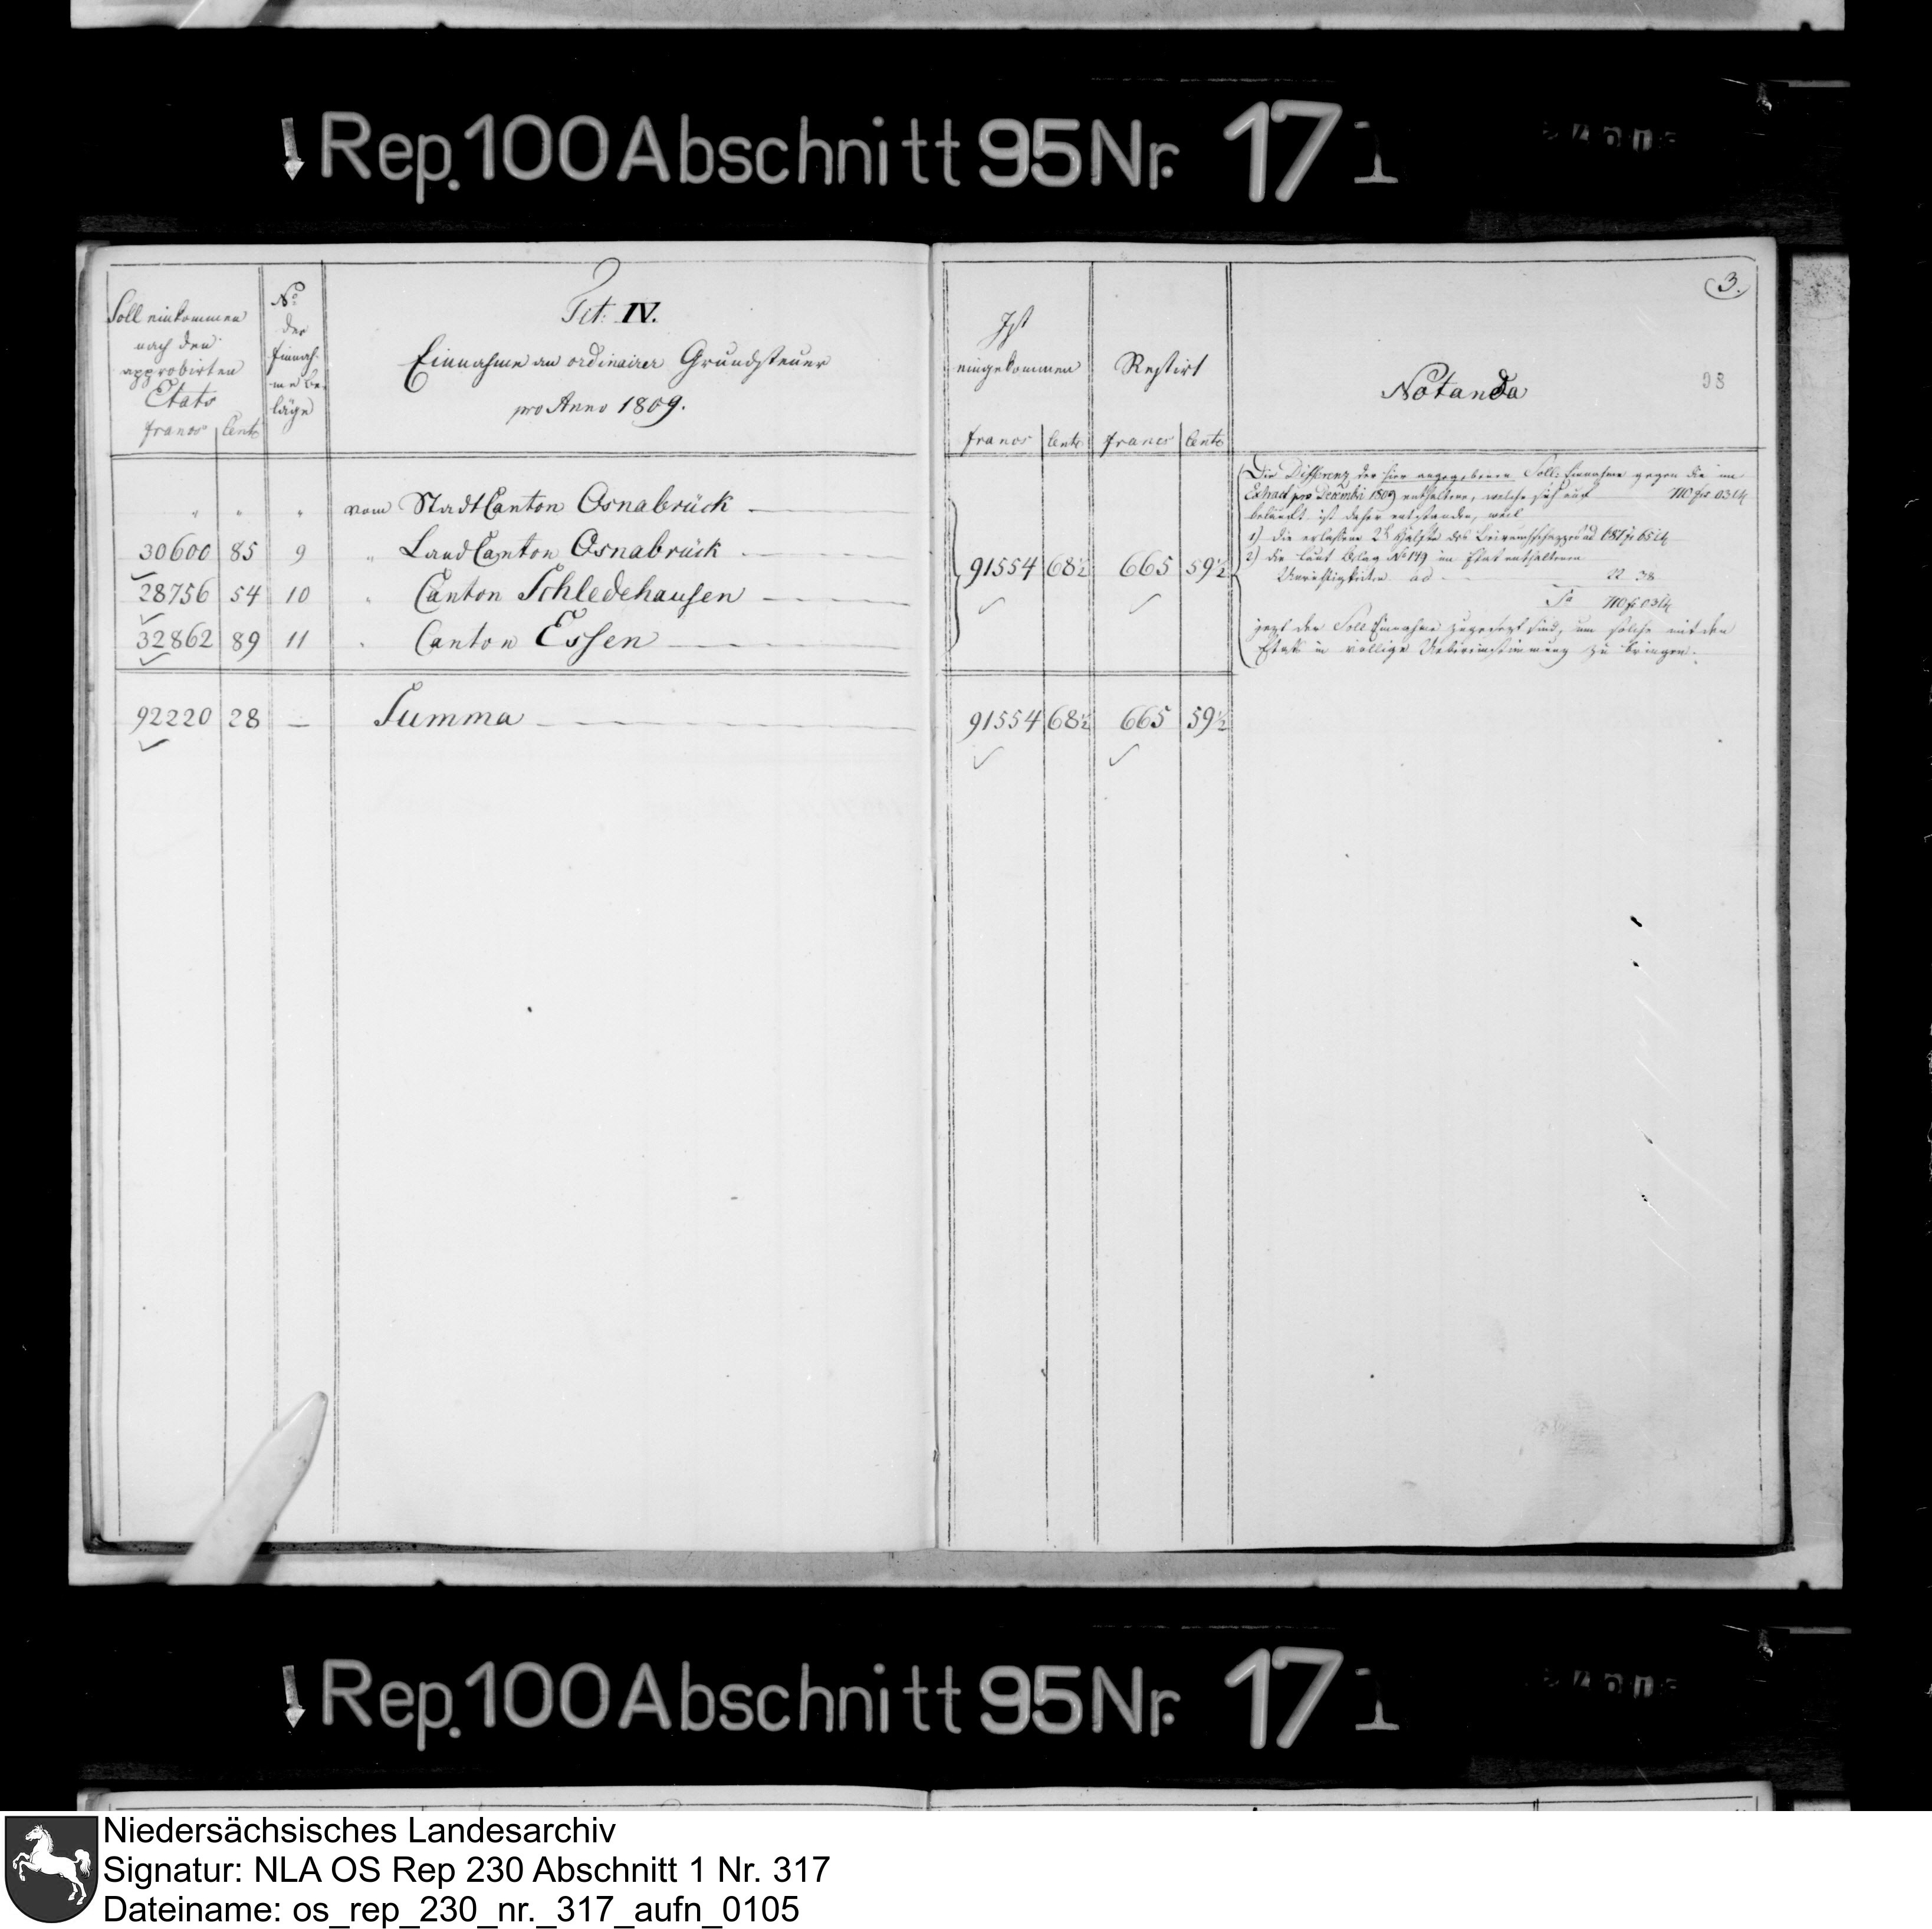 Rep. 100 Abschnitt 95 Nr. 17
Soll einkommen
nach den
approbirten
Etats
francs Cents
No
der
Einnah-
me be-
läge
Tit: IV.
Einnahme an ordinairer Grundsteuer
pro Anno 1809.
Ist
eingekommen
francs Cents
Restirt
francs Cents
Notanda
3.
93
" " " vom StadtCanton Osnabrück
30600 85 9 " LandCanton Osnabrück
28756 54 10 " Canton Schledehausen
32862 89 11 " Canton Essen
91554 68½ 665 59½
Die Differenz der hier angegebenen Soll-Einnahme gegen die im
Extract pro Decembr 1809 enthaltene, welche sich auf 710 frs 03 Ct
beläuft ist daher entstanden, weil
1) die erlassene 2te Hälfte des ad 687 fr 65 Ct
2) die laut Belag No 149 im Etat enthaltenen
Unrichtigkeiten ad 22 38
Sa 710 fr 03 Ct
jezt der Soll Einnahme zugesezt sind, um solche mit den
Etats in völlige Uebereinstimmung zu bringen.
92220 28 — Summa 91554 68½ 665 59½
Rep. 100 Abschnitt 95 Nr. 17
Niedersächsisches Landesarchiv
Signatur: NLA OS Rep 230 Abschnitt 1 Nr. 317
Dateiname: os_rep_230_nr._317_aufn_0105